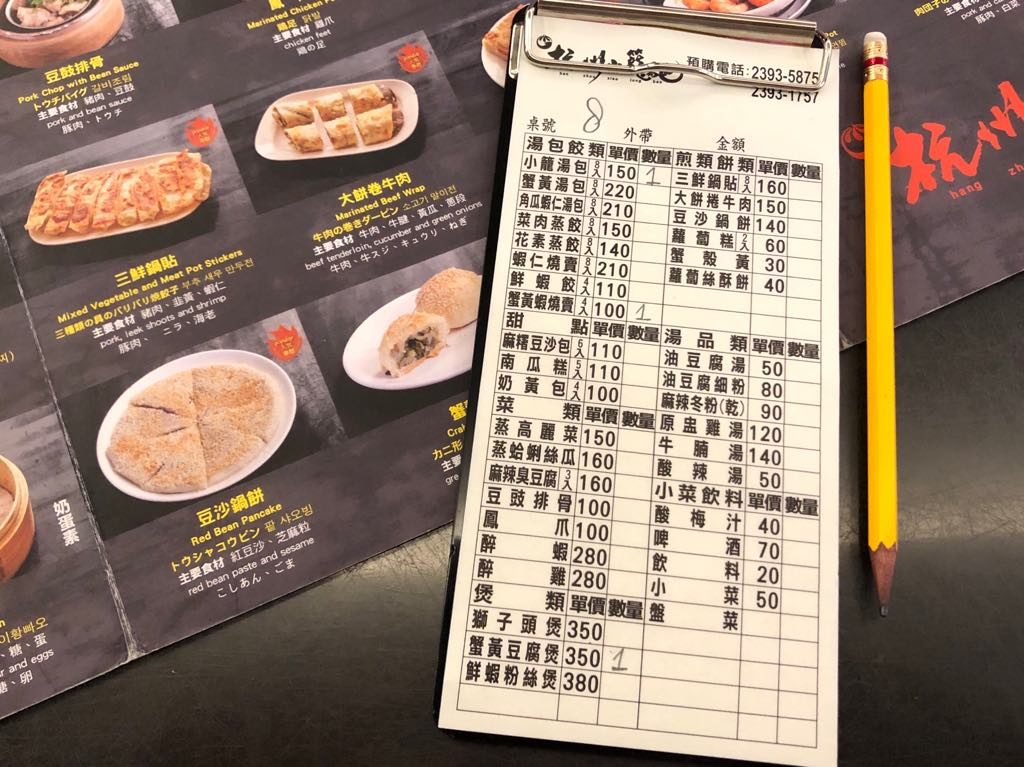 豆鼓排骨
Pork Chop with Bean Sauce
トウチパイグ 갈비조림
主要食材 豬肉、豆鼓
pork and bean sauce
豚肉、トウチ
Marinated Chicken
鶏足 닭발
主要食材 雞爪
chicken feet
鶏の足
大餅卷牛肉
Marinated Beef Wrap
牛肉の巻きダービン 소고기 말이전
主要食材 牛肉、牛腱、黃瓜、蔥段
beef tenderloin, cucumber and green onions
牛肉、牛スジ、キュウリ、ねぎ
三鮮鍋貼
Mixed Vegetable and Meat Pot Stickers
三種類の具のパリパリ焼餃子 부추 새우 만두전
主要食材 豬肉、韭黃、蝦仁
pork, leek shoots and shrimp
豚肉、ニラ、海老
豆沙鍋餅
Red Bean Pancake
トウシャコウビン 팥 샤오빙
主要食材 紅豆沙、芝麻粒
red bean paste and sesame
こしあん、ごま
蟹
Cra
カニ形
主要
gre
奶蛋素
이황빠오
、糖、蛋
r and eggs
糖、卵
肉団子の
pork and
豚肉、白菜
杭州
hang zh
杭州小籠湯包
hang zhou xiao long tang bao
預購電話:2393-5875
2393-1757
桌號 8 外帶 金額
湯包餃類 單價 數量 煎類餅類 單價 數量
小籠湯包 8入 150 1 三鮮鍋貼 8入 160
蟹黃湯包 8入 220 大餅捲牛肉 150
角瓜蝦仁湯包 8入 210 豆沙鍋餅 140
菜肉蒸餃 8入 150 蘿蔔糕 60
花素蒸餃 8入 140 蟹殼黃 30
蝦仁燒賣 8入 210 蘿蔔絲酥餅 40
鮮蝦餃 4入 110
蟹黃蝦燒賣 4入 100 1
甜點 單價 數量 湯品類 單價 數量
麻糬豆沙包 6入 110 油豆腐湯 50
南瓜糕 110 油豆腐細粉 80
奶黃包 4入 100 麻辣冬粉(乾) 90
菜類 單價 數量 原盅雞湯 120
蒸高麗菜 150 牛腩湯 140
蒸蛤蜊絲瓜 160 酸辣湯 50
麻辣臭豆腐 3入 160 小菜飲料 單價 數量
豆豉排骨 100 酸梅汁 40
鳳爪 100 啤酒 70
醉蝦 280 飲料 20
醉雞 280 小菜 50
煲類 單價 數量 盤菜
獅子頭煲 350
蟹黃豆腐煲 350 1
鮮蝦粉絲煲 380